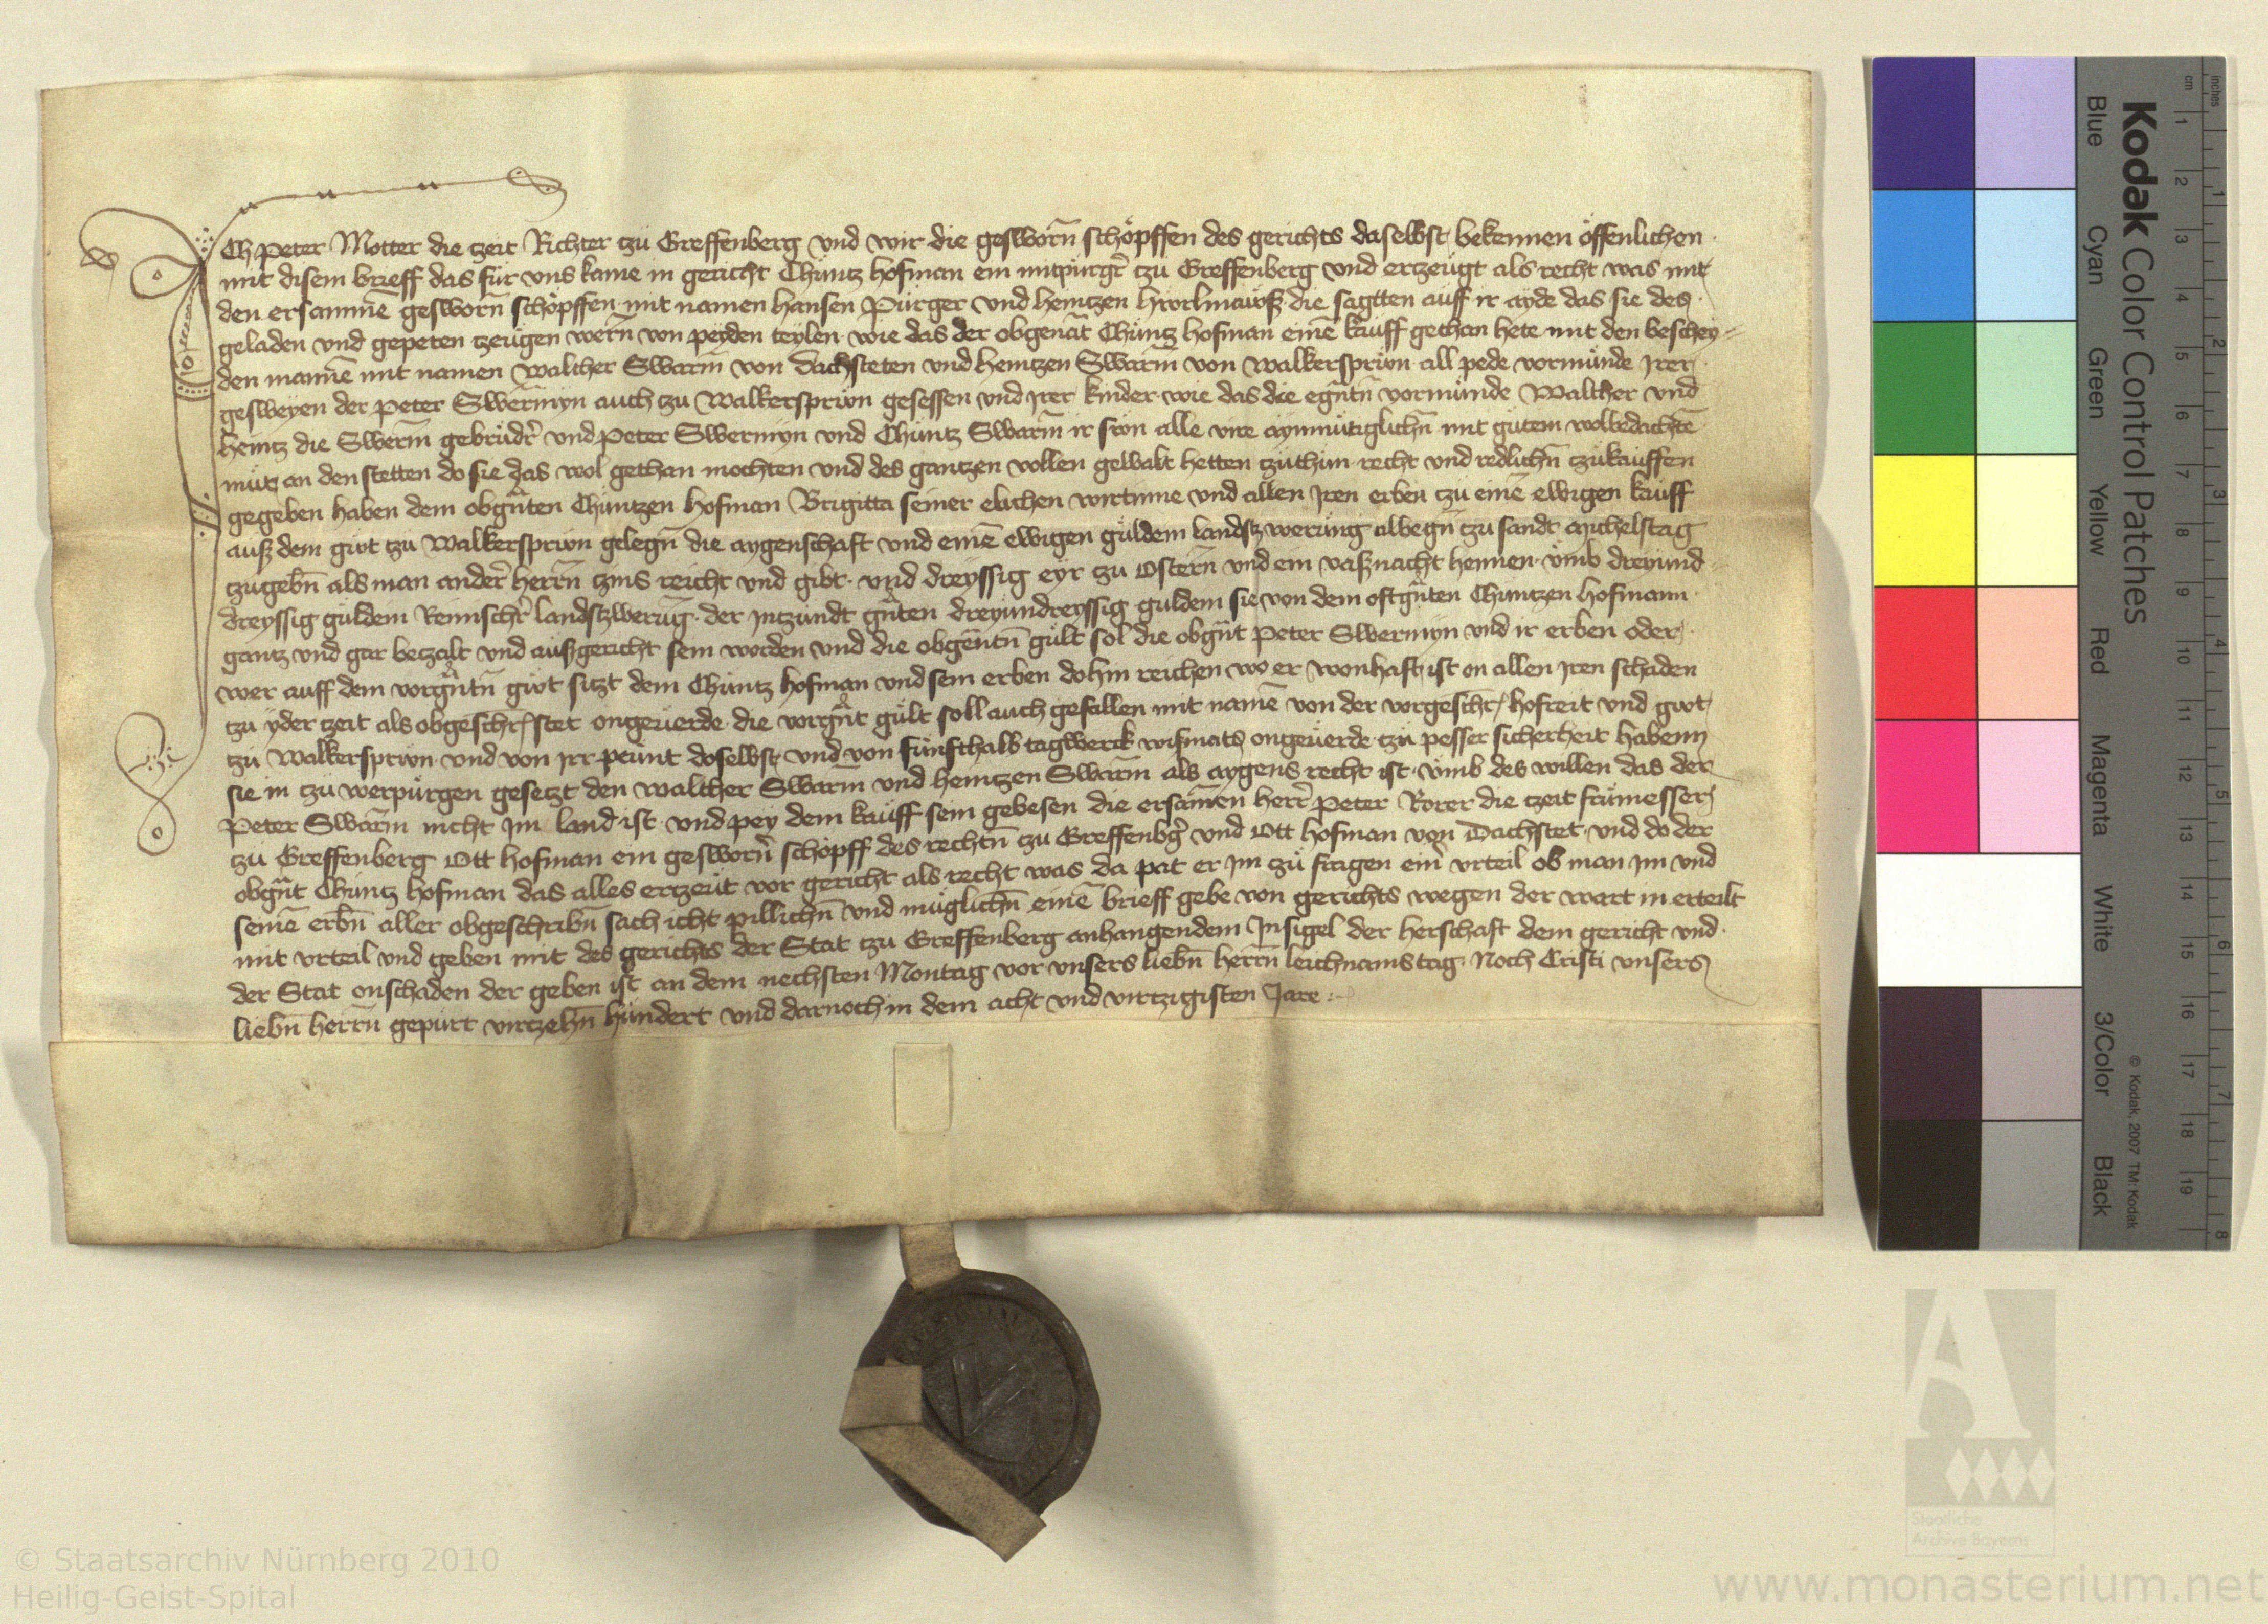 Ich Peter Motter die zeit Richter zu Greffenberg vnd wir die gesworn̄ schöpffen des gerichts daselbst bekennen öffenlichen
mit disem brieff das für vns kame in gericht Chuntz Hofman ein mitpurg̉ zu Greffenberg vnd ertzeugt als recht was mit
den ersamnē gesworn̄ schöpffen mit namen Hansen Pürger vnd Heintzen die sagtten auff ir ayde das sie des
geladen vnd gepeten tzeugen wern̄ von peyden teylen wie das der obgenāt Chuntz Hofman einē kauff gethan hete mit den beschey-
den mannē mit namen Walther Swarm̄ von Dachsteten vnd Heintzen Swarm̄ von Walkersprwn all pede vormunde Jrer
gesweyen der Peter Swermyn auch zu Walkersprwn gesessen vnd jrer kinder wie das die egn̄tn̄ vormunde Walther vnd
Heintz die Swerm̄ gebrudr̉ vnd Peter Swermyn vnd Chuntz Swarm̄ ir sön alle vire aynmutiglichn̄ mit gutem wolbedachtē
mut an den stetten do sie das wol gethan mochten vnd des gantzen vollen gewalt hetten zuthun recht vnd redlichn̄ zukauffen
gegeben haben dem obgn̄ten Chuntzen Hofman Brigitta seiner elichen wirtinne vnd allen Jren erben zu einē ewigen kauff
auß dem gwt zu Walkersprwn gelegn̄ die aygenschaft vnd einē ewigen guldein landsz werung albegn̄ zu sandt Michelstag
zugebn̄ als man ander̉ herrn̄ zins reicht vnd gibt vnd dreyssig eyr zu Ostern̄ vnd ein vaßnacht hennen vmb dreyund
dreyssig guldein Reinischr̉ landszwerūg der jntzundt gn̄ten dreyundreyssig guldein sie von dem oftgn̄ten Chuntzen Hofmann
gantz vnd gar betzalt vnd außgericht sein worden vnd die obgen̄tn̄ gült sol die obgn̄t Peter Swermyn vnd ir erben oder
wer auff dem vorgn̄tn̄ gwt sitzt dem Chuntz Hofman vnd sein erben dohin reichen wo er wonhaft ist on allen jren schaden
zu yder zeit als obgeschr̄ stet ongeuerde die vorgn̄t gült soll auch gefallen mit namē von der vorgeschr̄ hofreit vnd gwt
zu Walkersprwn vnd von jrr peunt doselbst vnd von funfthalb tagwerck wismats ongeuerde zu pesser sicherheit habenn
sie in zu werpurgen gesetzt den Walther Swarm vnd Heintzen Swarm̄ als aygens recht ist vmb des willen das der
Peter Swarm̄ nicht jm land ist vnd pey dem kauff sein gebesen die ersamen herr̉ Peter Rorer die zeit frümesser
zu Greffenberg Ott Hofman ein gesworn̉ schöpff des rechtn̄ zu Greffenbg̉ vnd Ott Hofman von Dachstet vnd do der
obgn̄t Chuntz Hofman das alles ertzeut vor gericht als recht was da pat er jm zu fragen ein vrteil ob man jm vnd
seinē erbn̄ aller obgeschribn̄ sach icht pillichn̄ vnd müglichn̄ einē brieff gebe von gerichts wegen der wart in erteilt
mit vrteil vnd geben mit des gerichts der Stat zu Greffenberg anhangendem Jnsigel der herschaft dem gericht vnd
der Stat onschaden der geben ist an dem nechsten Montag vor vnsers liebn̄ herrn̄ leichnamstag Noch Cristi vnsers
liebn̄ herrn̄ gepurt virtzehn̄ hundert vnd darnoch in dem acht vnd virtzigisten Jare
Kodak Color Control Patches
Blue Cyan Green Yellow Red Magenta White 3/Color Black
© Kodak, 2007 TM: Kodak
inches 1 2 3 4 5 6 7 8
cm 1 2 3 4 5 6 7 8 9 10 11 12 13 14 15 16 17 18 19
Staatliche
Archive Bayerns
© Staatsarchiv Nürnberg 2010
Heilig-Geist-Spital
www.monasterium.net